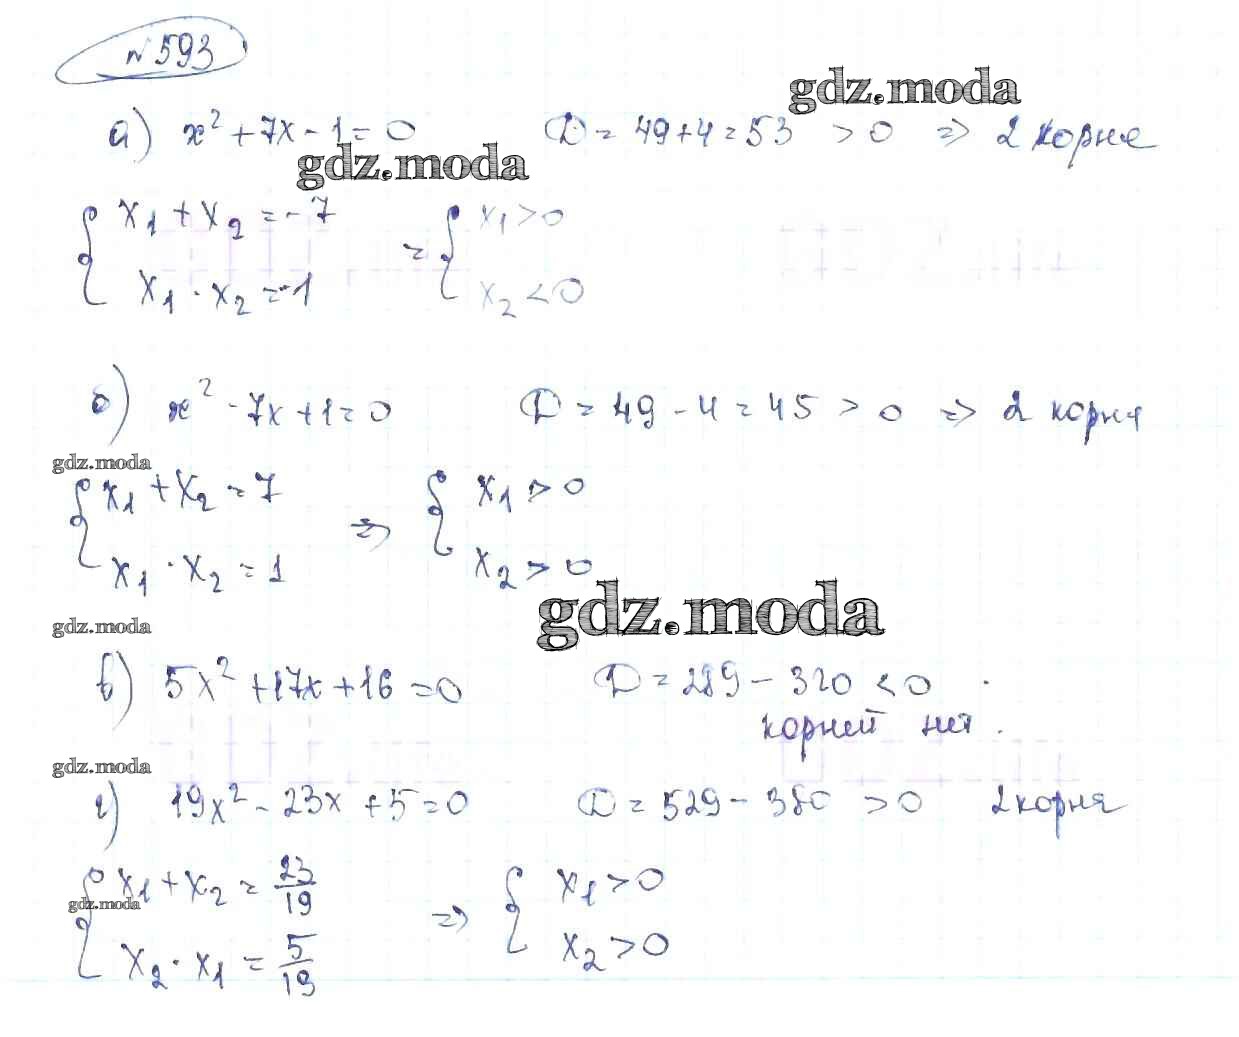 №593
gdz.moda
а) x² + 7x - 1 = 0 D = 49 + 4 = 53 > 0 => 2 корня
gdz.moda
{ x₁ + x₂ = -7 = { x₁ > 0
x₁ · x₂ = -1 x₂ < 0
б) x² - 7x + 1 = 0 D = 49 - 4 = 45 > 0 => 2 корня
gdz.moda
{ x₁ + x₂ = 7 => { x₁ > 0
x₁ · x₂ = 1 x₂ > 0
gdz.moda
gdz.moda
в) 5x² + 17x + 16 = 0 D = 289 - 320 < 0 .
корней нет.
gdz.moda
г) 19x² - 23x + 5 = 0 D = 529 - 380 > 0 2 корня
{ x₁ + x₂ = 23/19 => { x₁ > 0
gdz.moda
x₂ · x₁ = 5/19 x₂ > 0